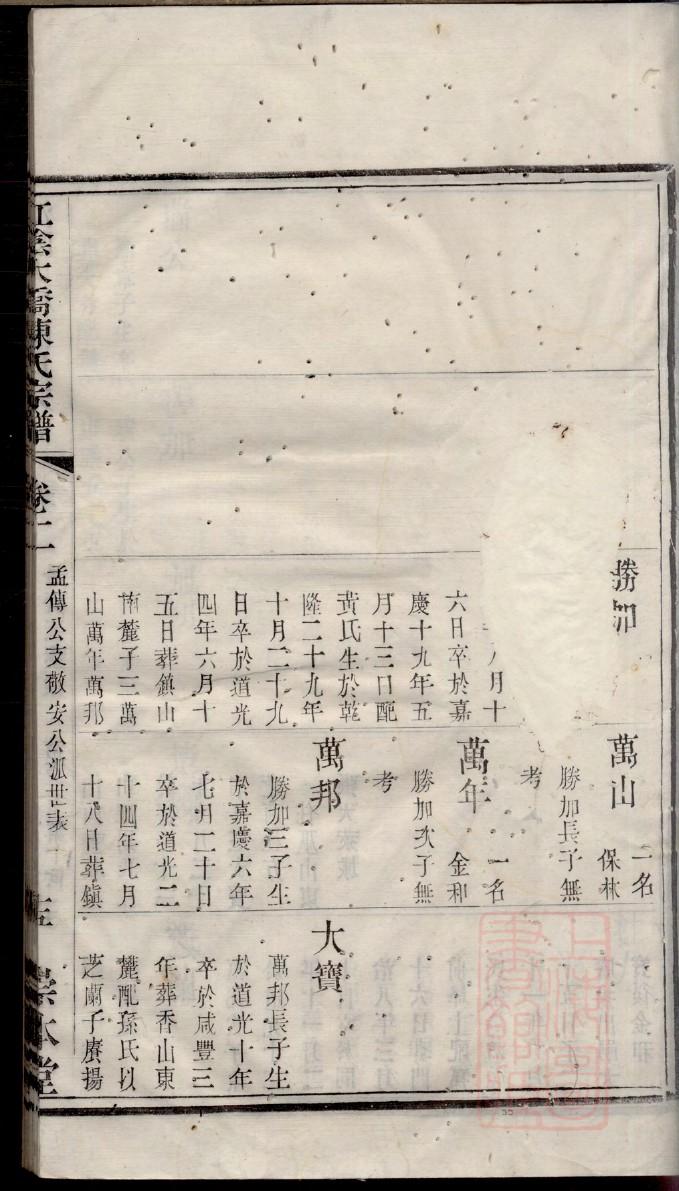 勝加
八月十
六日卒於嘉
慶十九年五
月十三日配
黃氏生於乾
隆二十九年
十月二十九
日卒於道光
四年六月十
五日葬鎮山
南麓子三萬
山萬年萬邦
萬山
一名
保林
勝加長子無
考
萬年
一名
金和
勝加次子無
考
萬邦
勝加三子生
於嘉慶六年
七月二十日
卒於道光二
十四年七月
十八日葬鎮
大寶
萬邦長子生
於道光十年
卒於咸豐三
年葬香山東
麓配孫氏以
芝蘭子賡揚
江陰大橋陳氏宗譜
卷二
孟傳公支敬安公派世表